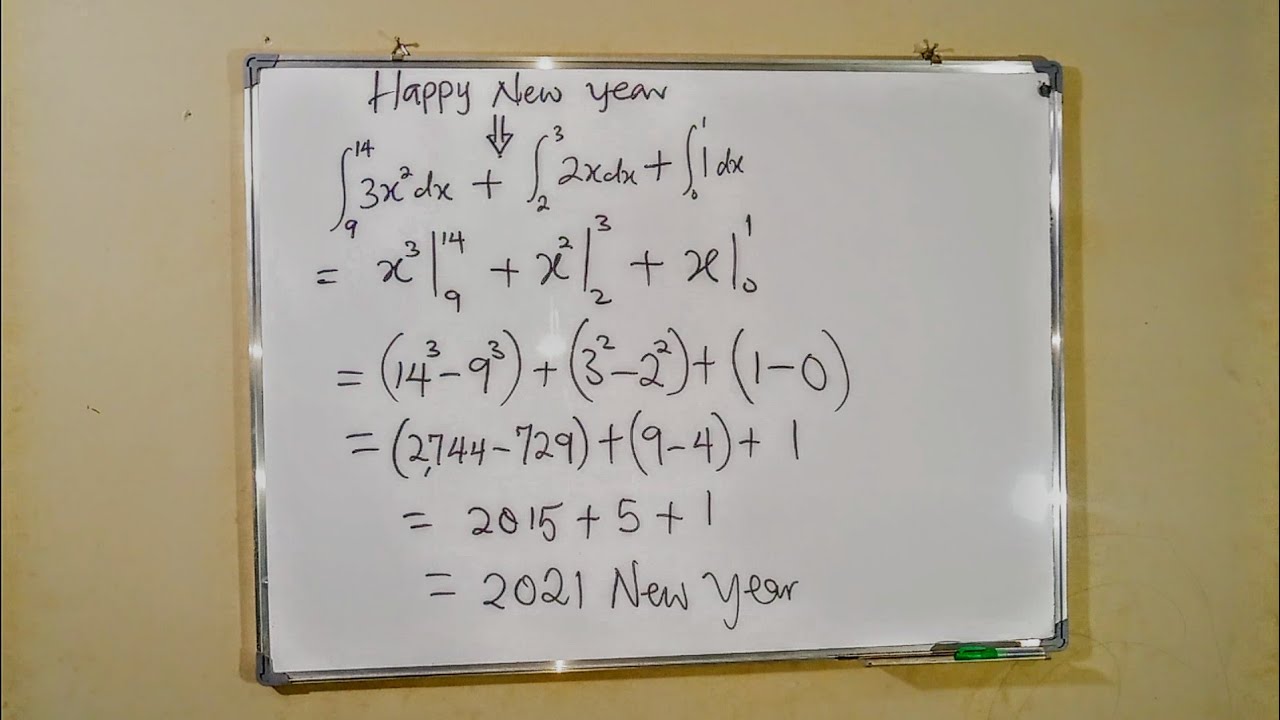 Happy New year
⇓
∫₉¹⁴ 3x² dx + ∫₂³ 2x dx + ∫₀¹ 1 dx
= x³|₉¹⁴ + x²|₂³ + x|₀¹
= (14³ - 9³) + (3² - 2²) + (1 - 0)
= (2,744 - 729) + (9 - 4) + 1
= 2015 + 5 + 1
= 2021 New Year